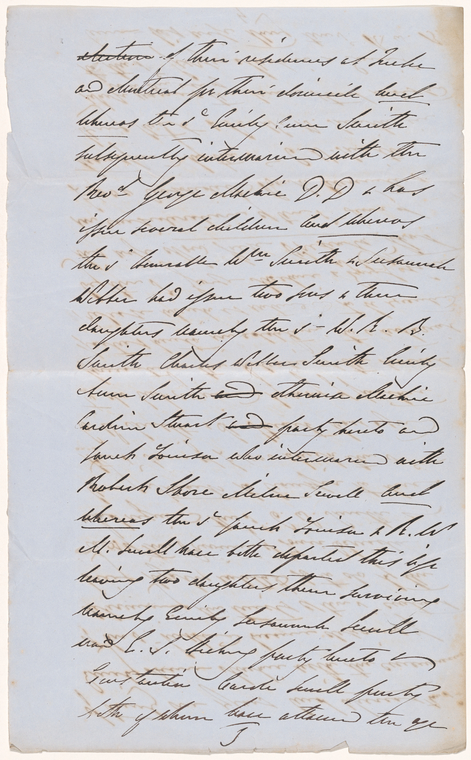 election of their residences at Quebec
and Montreal for their domicile and
whereas the sd. Emily Ann Smith
subsequently intermarried with the
Revd. George Mackie D.D & has
issue several children and whereas
the sd honorable Wm Smith & Susannah
Webber had issue two sons & three
daughters namely the sd W. R. B.
Smith Charles Webber Smith Emily
Ann Smith and otherwise Mackie
Caroline Stuart and party hereto and
Sarah Louisa who intermarried with
Robert Shore Milnes Sewell and
whereas the sd Sarah Louisa & R.
M. Sewell have both departed this life
leaving two daughters them surviving
namely Emily Susannah Sewell
party hereto
Sewell party
both of whom have attained the age